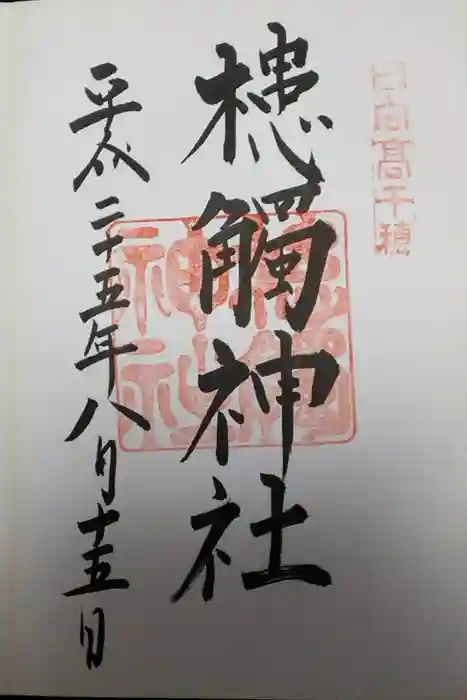 日向高千穂
槵觸神社
平成二十五年八月十五日